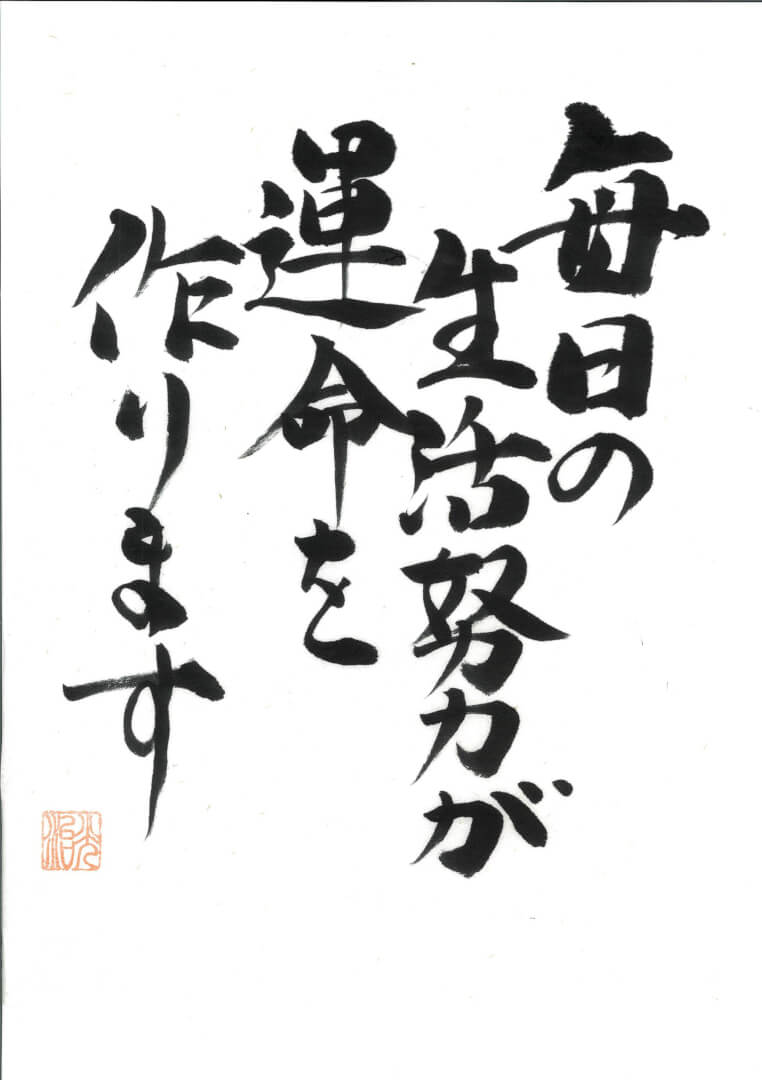 毎日の
生活努力が
運命を
作ります